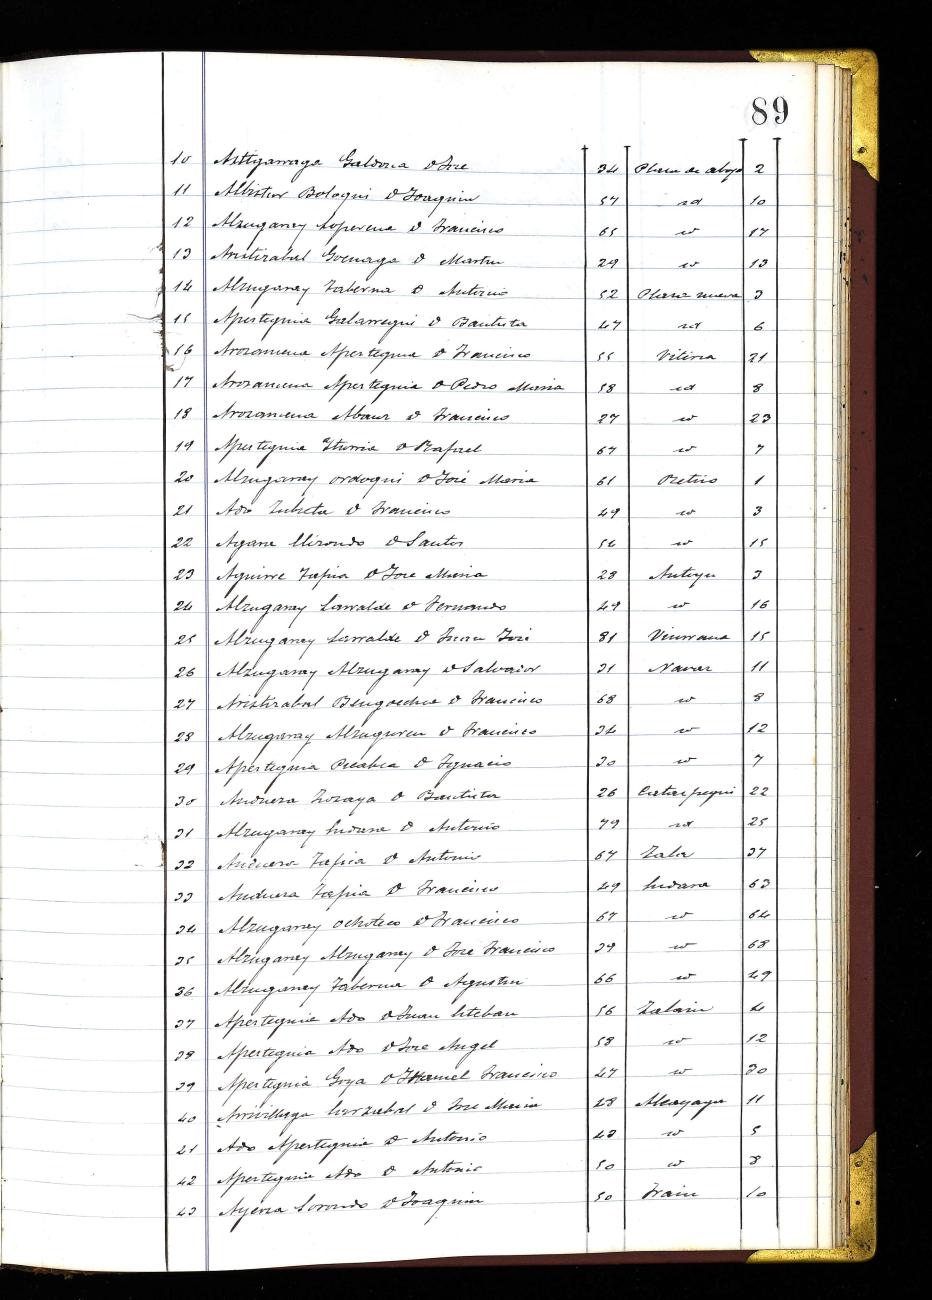 89
10 Astigarraga Galdona D Jose 34 Plaza de abajo 2
11 Albistur Bologui D Joaquin 57 id 10
12 Alzugaray Loperena D Francisco 65 id 17
13 Aristizabal Goenaga D Martin 29 id 13
14 Alzugaray Taberna D Antonio 52 Plaza nueva 3
15 Apesteguia Galarregui D Bautista 47 id 6
16 Arozamena Apesteguia D Francisco 55 Vitiria 21
17 Arozamena Apesteguia D Pedro Maria 58 id 8
18 Arozamena D Francisco 27 id 23
19 Apesteguia Iturria D Rafael 67 id 7
20 Alzugaray Ordoqui D José Maria 61 Retiro 1
21 Ado Zubieta D Francisco 49 id 3
22 Elizondo D Santos 56 id 15
23 Aguirre Tapia D Jose Maria 28 3
24 Alzugaray Larralde D Fernando 49 id 16
25 Alzugaray Larralde D Juan José 81 15
26 Alzugaray Alzugaray D Salvador 31 11
27 Aristizabal Bengoechea D Francisco 68 id 8
28 Alzugaray Alzuguren D Francisco 34 id 12
29 Apesteguia Picabea D Ignacio 30 id 7
30 Andueza Zozaya D Bautista 26 22
31 Alzugaray Indara D Antonio 79 id 25
32 Andueza Tapia D Antonio 67 Zala 37
33 Andueza Tapia D Francisco 49 63
34 Alzugaray Ochoteco D Francisco 67 id 64
35 Alzugaray Alzugaray D Jose Francisco 39 id 68
36 Alzugaray Taberna D Agustin 66 id 49
37 Apesteguia Ado D Juan Esteban 56 Zalain 4
38 Apesteguia Ado D Jose Angel 58 id 12
39 Apesteguia Goya D Manuel Francisco 47 id 30
40 Arrivillaga D Jose Maria 28 Alcayaga 11
41 Ado Apesteguia D Antonio 43 id 5
42 Apesteguia Ado D Antonio 50 id 8
43 D Joaquin 50 10